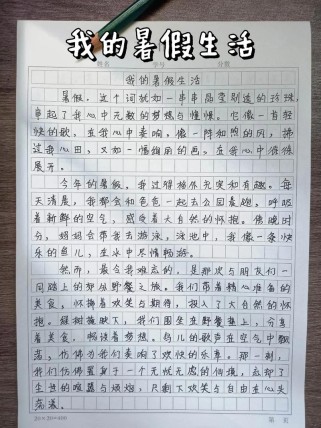 我的暑假生活
姓名 学号 分数
我的暑假生活
暑假,这个词就如一串串晶莹剔透的珍珠,
串起了我心中无数的梦想与憧憬。它像一首轻
快的歌,在我心中奏响,像一阵和煦的风,拂
过我心田,又如一幅绚丽的画,在我心中徐徐
展开。
今年的暑假,我过得格外充实和有趣。每
天清晨,我都会和爸爸一起去公园晨跑,呼吸
着新鲜的空气,感受着大自然的怀抱。傍晚时
分,妈妈会带我去游泳,泳池中,我像一条快
乐的鱼儿,在水中尽情畅游。
然而,最令我难忘的,是那次与朋友们一
同踏上的郊外野餐之旅。我们带着精心准备的
美食,怀揣着欢笑与期待,投入了大自然的怀
抱。绿树掩映下,我们围坐在野餐垫上,分享
着美食,畅谈着梦想。鸟儿的歌声在空气中飘
荡,仿佛为我们奏响了欢快的乐章。那一刻,
我们仿佛置身于一个无忧无虑的仙境,忘却了
尘世的喧嚣与烦恼,只剩下欢笑与自由在心头
荡漾。
第 页